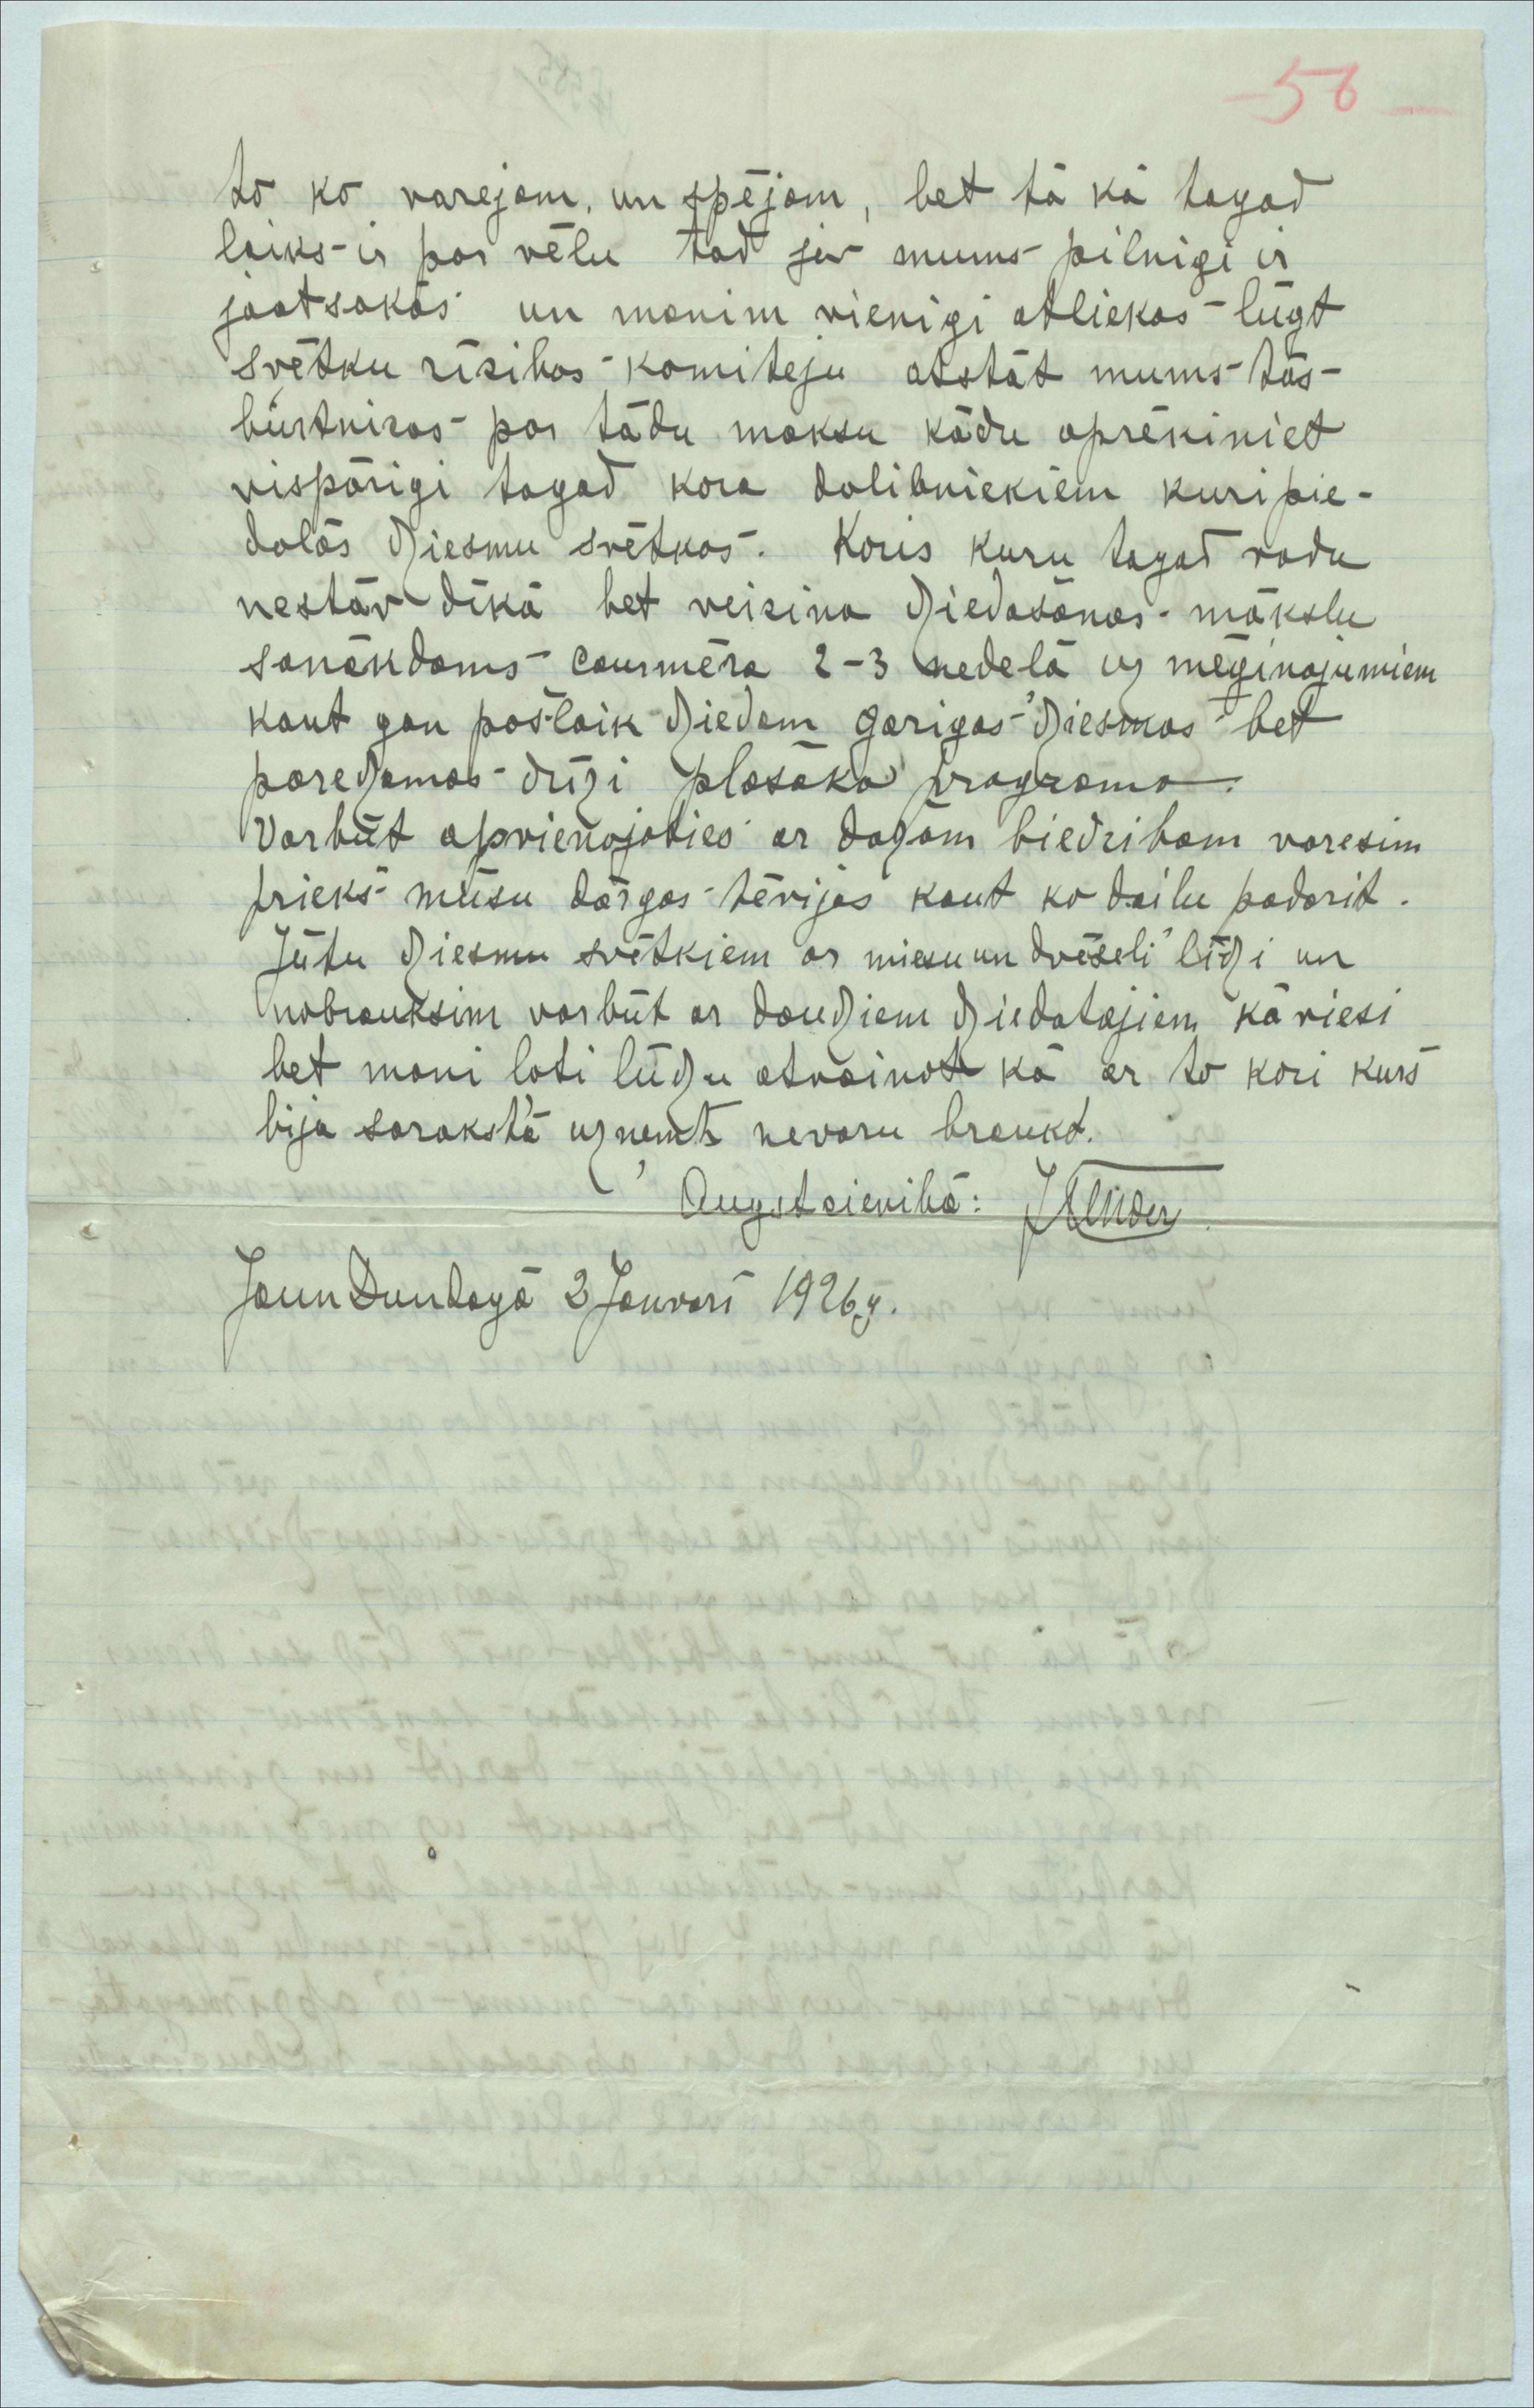 56
to ko varejam, un spējam, bet tā kā tagad
laiks ir par vēlu tad jav mums pilnigi ir
jaatsakās un manim vienigi atliekas lūgt
svētku rīsibas komiteju atstāt mums tās
burtnicas par tādu maksu kādu aprēkiniet
vispārigi tagad kora dalibniekiem kuri pie-
dalās dziesmu svētkos. Koris kuru tagad vadu
nestāv dīkā bet veicina dziedašanas mākslu
sanākdams caurmēra 2-3 nedeļā uz mēģinajumiem
kaut gan pašlaik dziedam garigas dziesmas bet
paredzamas drīzi plašaka programa.
Varbūt apvienojaties ar dažam biedribam varesim
prieks mūsu dārgas tēvijas kaut ko dailu padarit.
Jūtu dziesmu svētkiem ar miesu un dvēseli līdzi un
nobrauksim varbūt ar daudziem dziedatajiem kā viesi
bet mani loti lūdzu atvainot kā ar to kori kurs
bija sarakstā uzņemts nevaru braukt.
Augstcienibā:
JaunDundagā 2 Janvarī 1926.g.